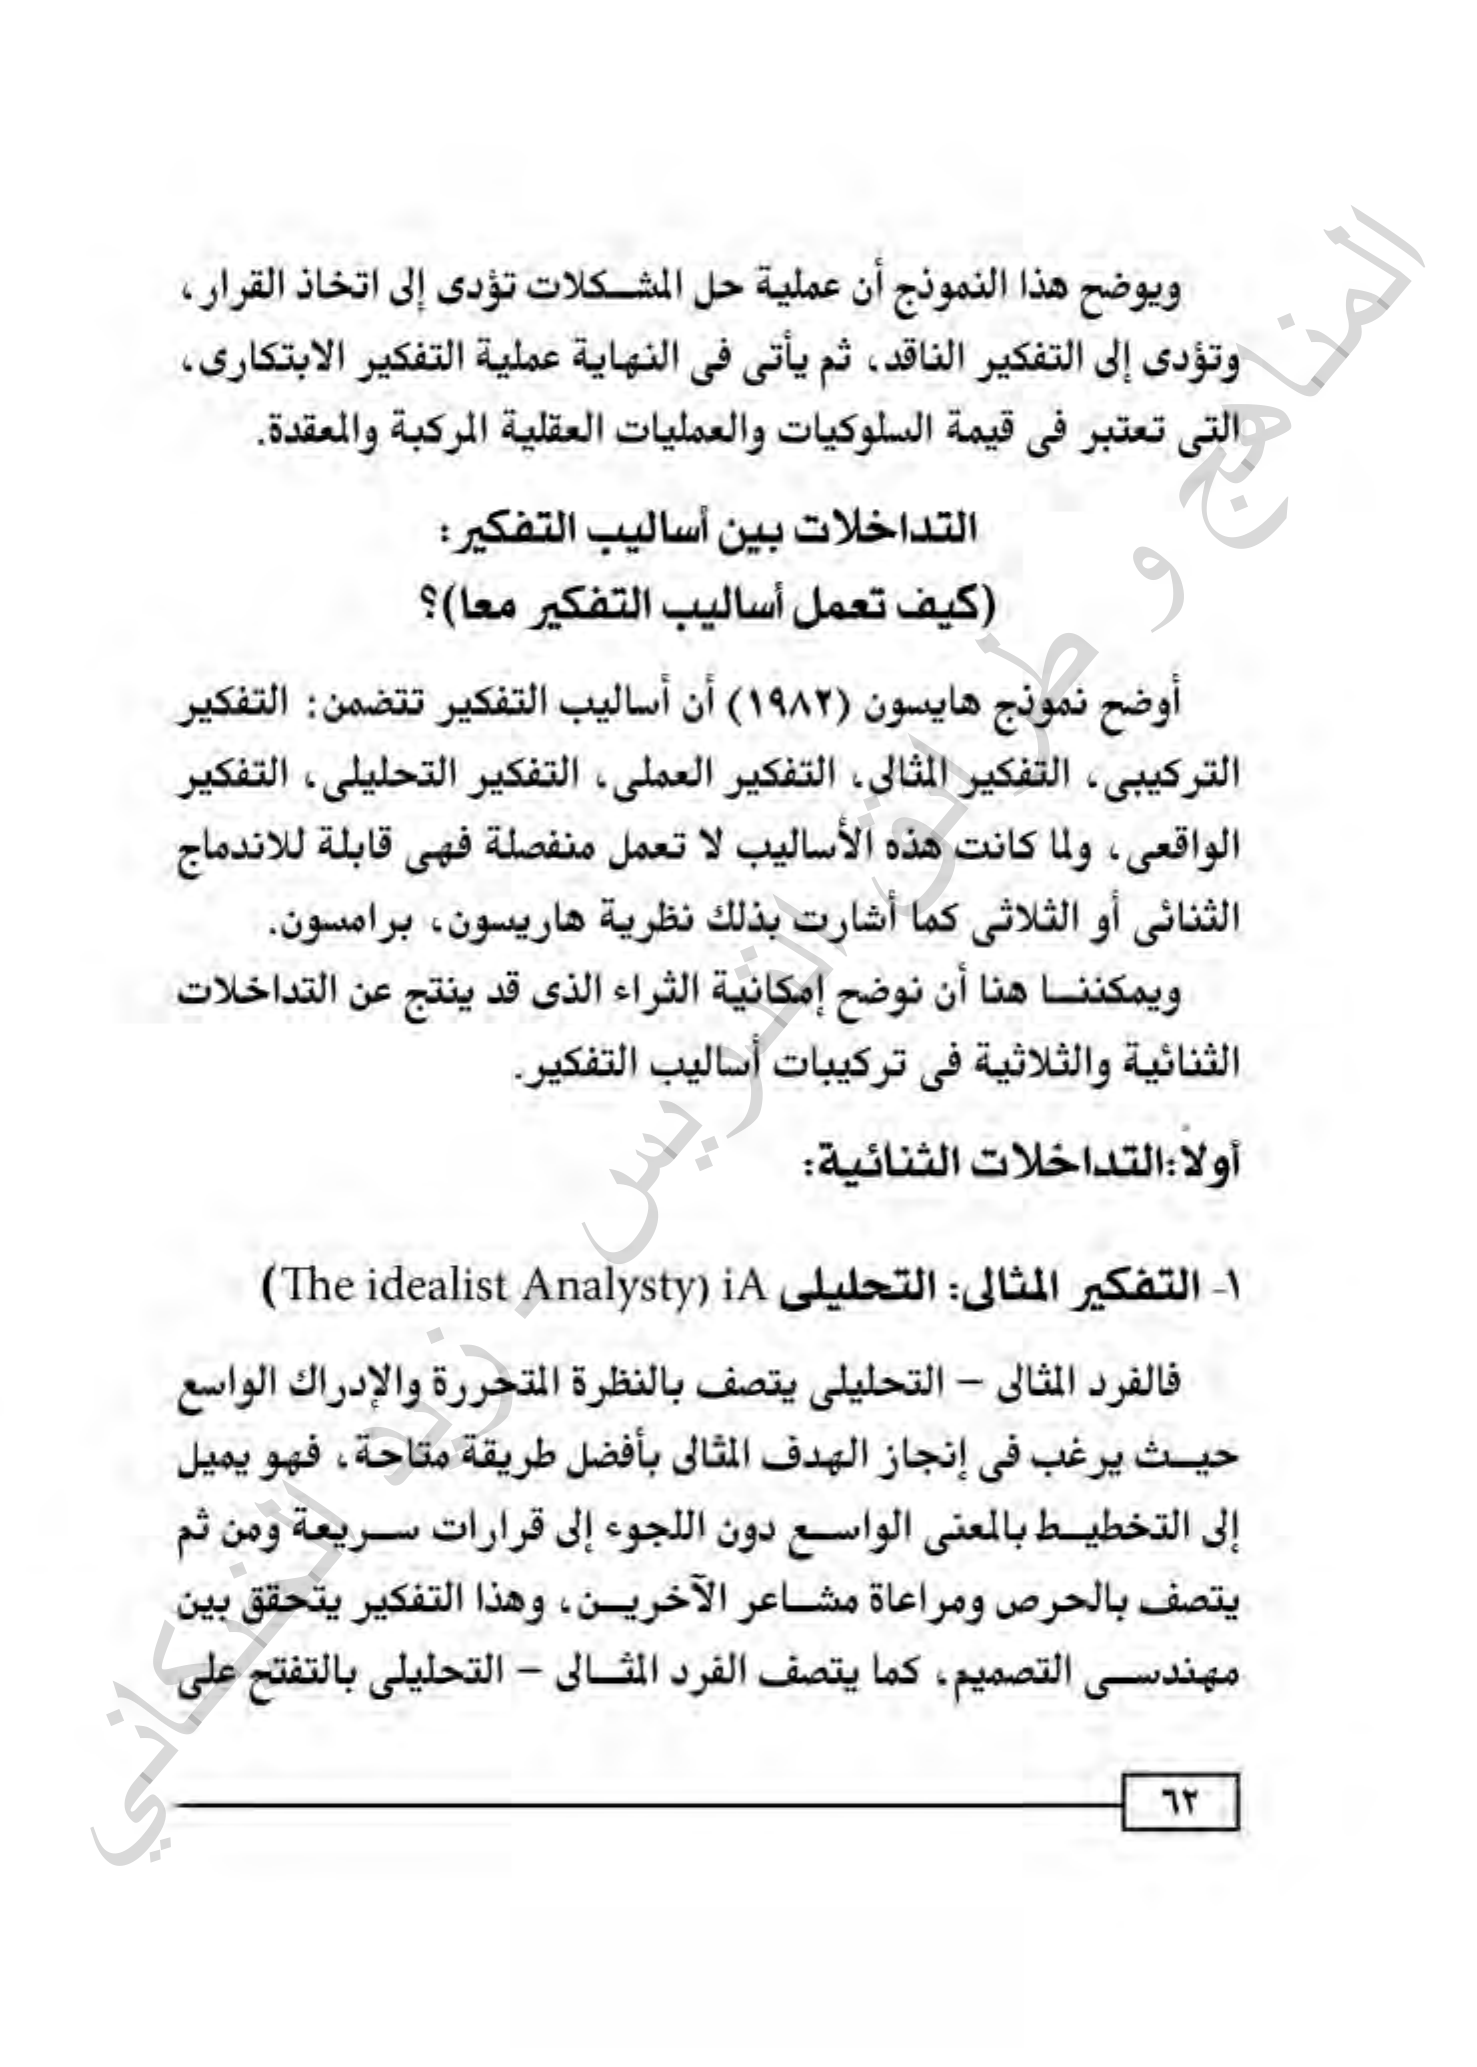 ويوضح هذا النموذج أن عملية حل المشكلات تؤدى إلى اتخاذ القرار،
وتؤدى إلى التفكير الناقد، ثم يأتى فى النهاية عملية التفكير الابتكارى،
التى تعتبر فى قيمة السلوكيات والعمليات العقلية المركبة والمعقدة.
التداخلات بين أساليب التفكير:
(كيف تعمل أساليب التفكير معا)؟
أوضح نموذج هايسون (١٩٨٢) أن أساليب التفكير تتضمن: التفكير
التركيبى، التفكير المثالى، التفكير العملى، التفكير التحليلى، التفكير
الواقعى، ولما كانت هذه الأساليب لا تعمل منفصلة فهى قابلة للاندماج
الثنائى أو الثلاثى كما أشارت بذلك نظرية هاريسون، برامسون.
ويمكننا هنا أن نوضح إمكانية الثراء الذى قد ينتج عن التداخلات
الثنائية والثلاثية فى تركيبات أساليب التفكير.
أولاً:التداخلات الثنائية:
١- التفكير المثالى: التحليلى The idealist Analysty) iA)
فالفرد المثالى – التحليلى يتصف بالنظرة المتحررة والإدراك الواسع
حيث يرغب فى إنجاز الهدف المثالى بأفضل طريقة متاحة، فهو يميل
إلى التخطيط بالمعنى الواسع دون اللجوء إلى قرارات سريعة ومن ثم
يتصف بالحرص ومراعاة مشاعر الآخرين، وهذا التفكير يتحقق بين
مهندسى التصميم، كما يتصف الفرد المثالى – التحليلى بالتفتح على
٦٢
المناهج و طرائق التدريس - زيد الخيكاني